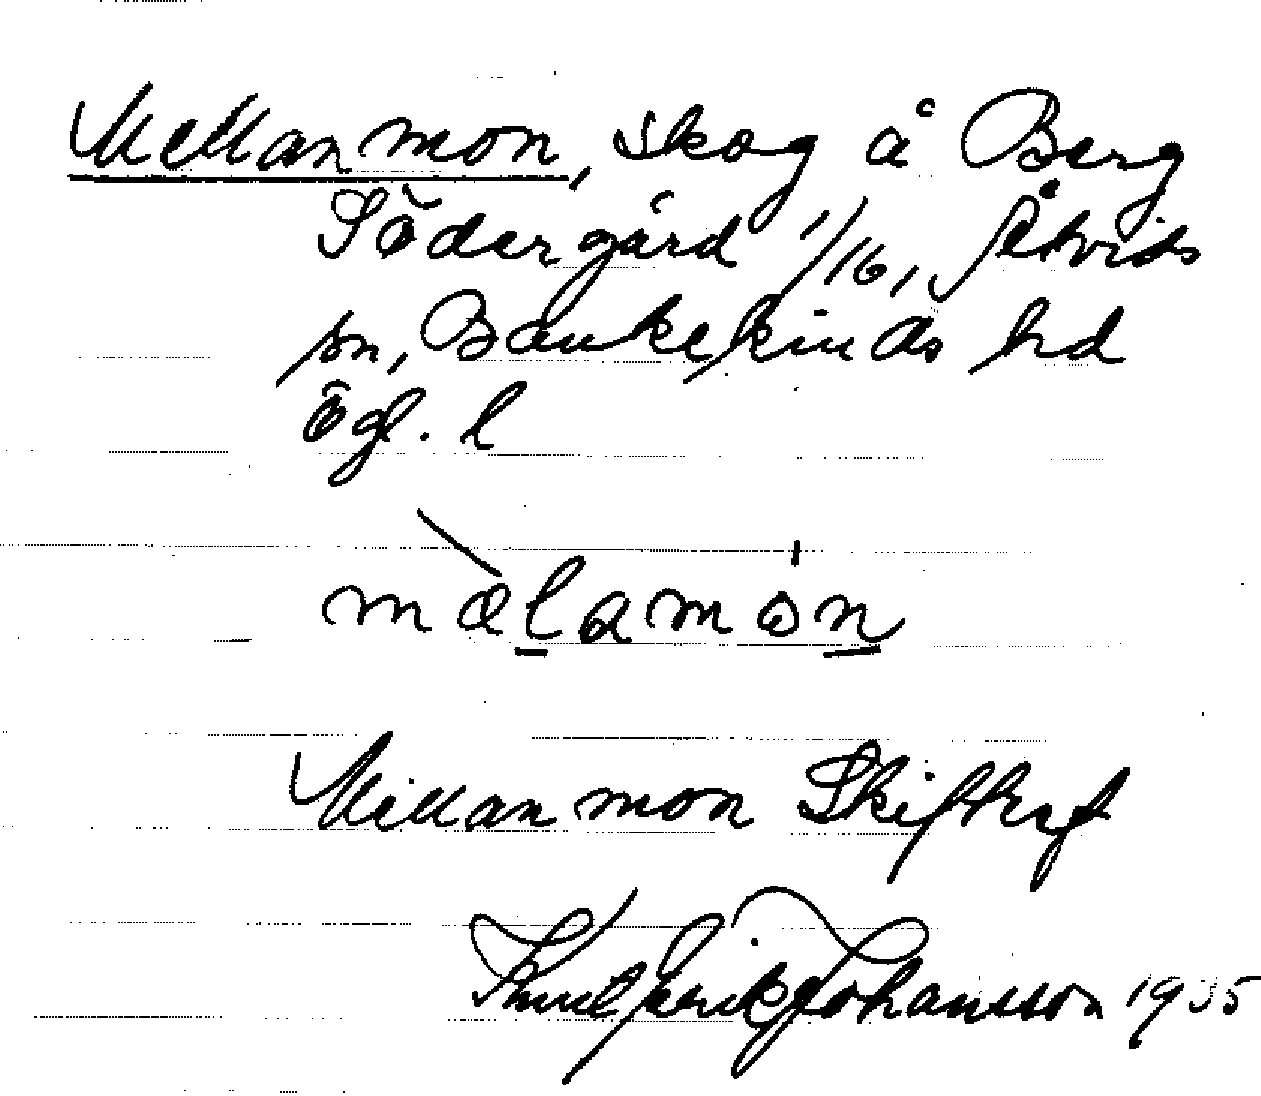 Mellanmon, skog å Berg
Södergård 1/16, Åtvids
sn, Bankekinds hd
Ögl. l
mælamon
Mellanmon Skifteskf
Knut Perik Johansson 1935